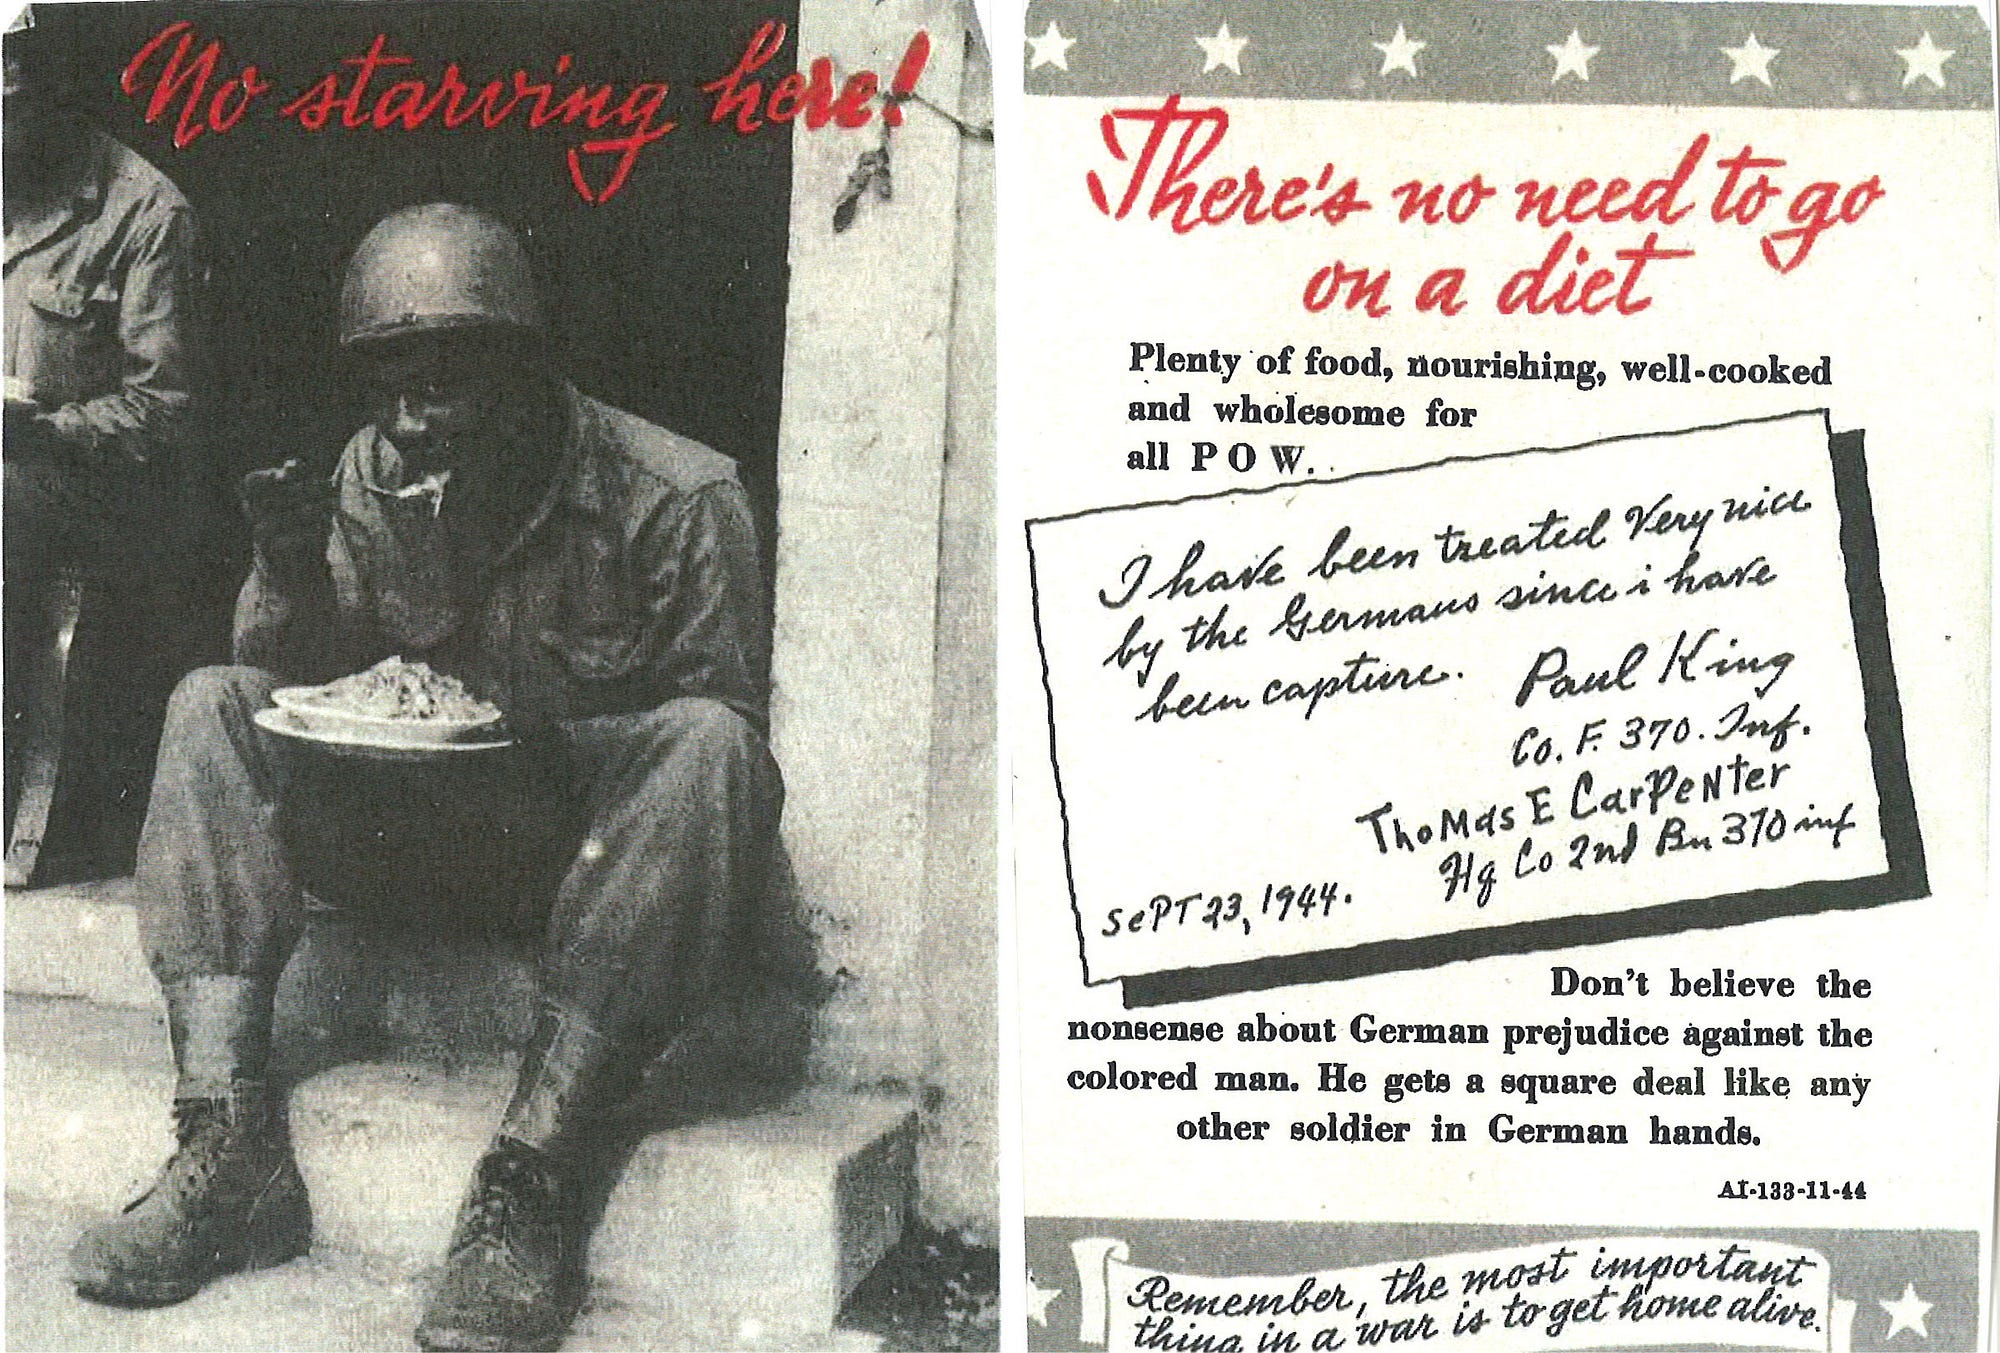 No starving here!
There's no need to go
on a diet
Plenty of food, nourishing, well-cooked
and wholesome for
all P O W.
I have been treated Very nice
by the Germans since i have
been capture.
Paul King
Co. F. 370. Inf.
ThoMas E CarPeNter
Hq Co 2nd Bn 370 inf
sePT 23, 1944.
Don't believe the
nonsense about German prejudice against the
colored man. He gets a square deal like any
other soldier in German hands.
AI-133-11-44
Remember, the most important
thing in a war is to get home alive.